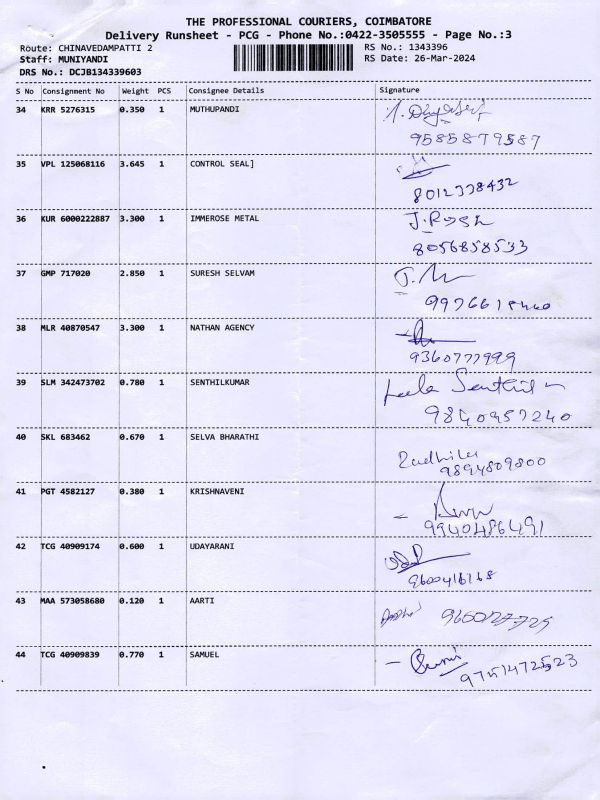 THE PROFESSIONAL COURIERS, COIMBATORE
Delivery Runsheet - PCG - Phone No.:0422-3505555 - Page No.:3
Route: CHINAVEDAMPATTI 2 RS No.: 1343396
Staff: MUNIYANDI RS Date: 26-Mar-2024
DRS No.: DCJB134339603
S No Consignment No Weight PCS Consignee Details Signature
34 KRR 5276315 0.350 1 MUTHUPANDI
9585879587
35 VPL 125068116 3.645 1 CONTROL SEAL]
36 KUR 6000222887 3.300 1 IMMEROSE METAL
8056858533
37 GMP 717020 2.850 1 SURESH SELVAM
38 MLR 40870547 3.300 1 NATHAN AGENCY
9360777999
39 SLM 342473702 0.780 1 SENTHILKUMAR
9840957240
40 SKL 683462 0.670 1 SELVA BHARATHI
9894809800
41 PGT 4582127 0.380 1 KRISHNAVENI
9940486491
42 TCG 40909174 0.600 1 UDAYARANI
9600416168
43 MAA 573058680 0.120 1 AARTI
44 TCG 40909839 0.770 1 SAMUEL